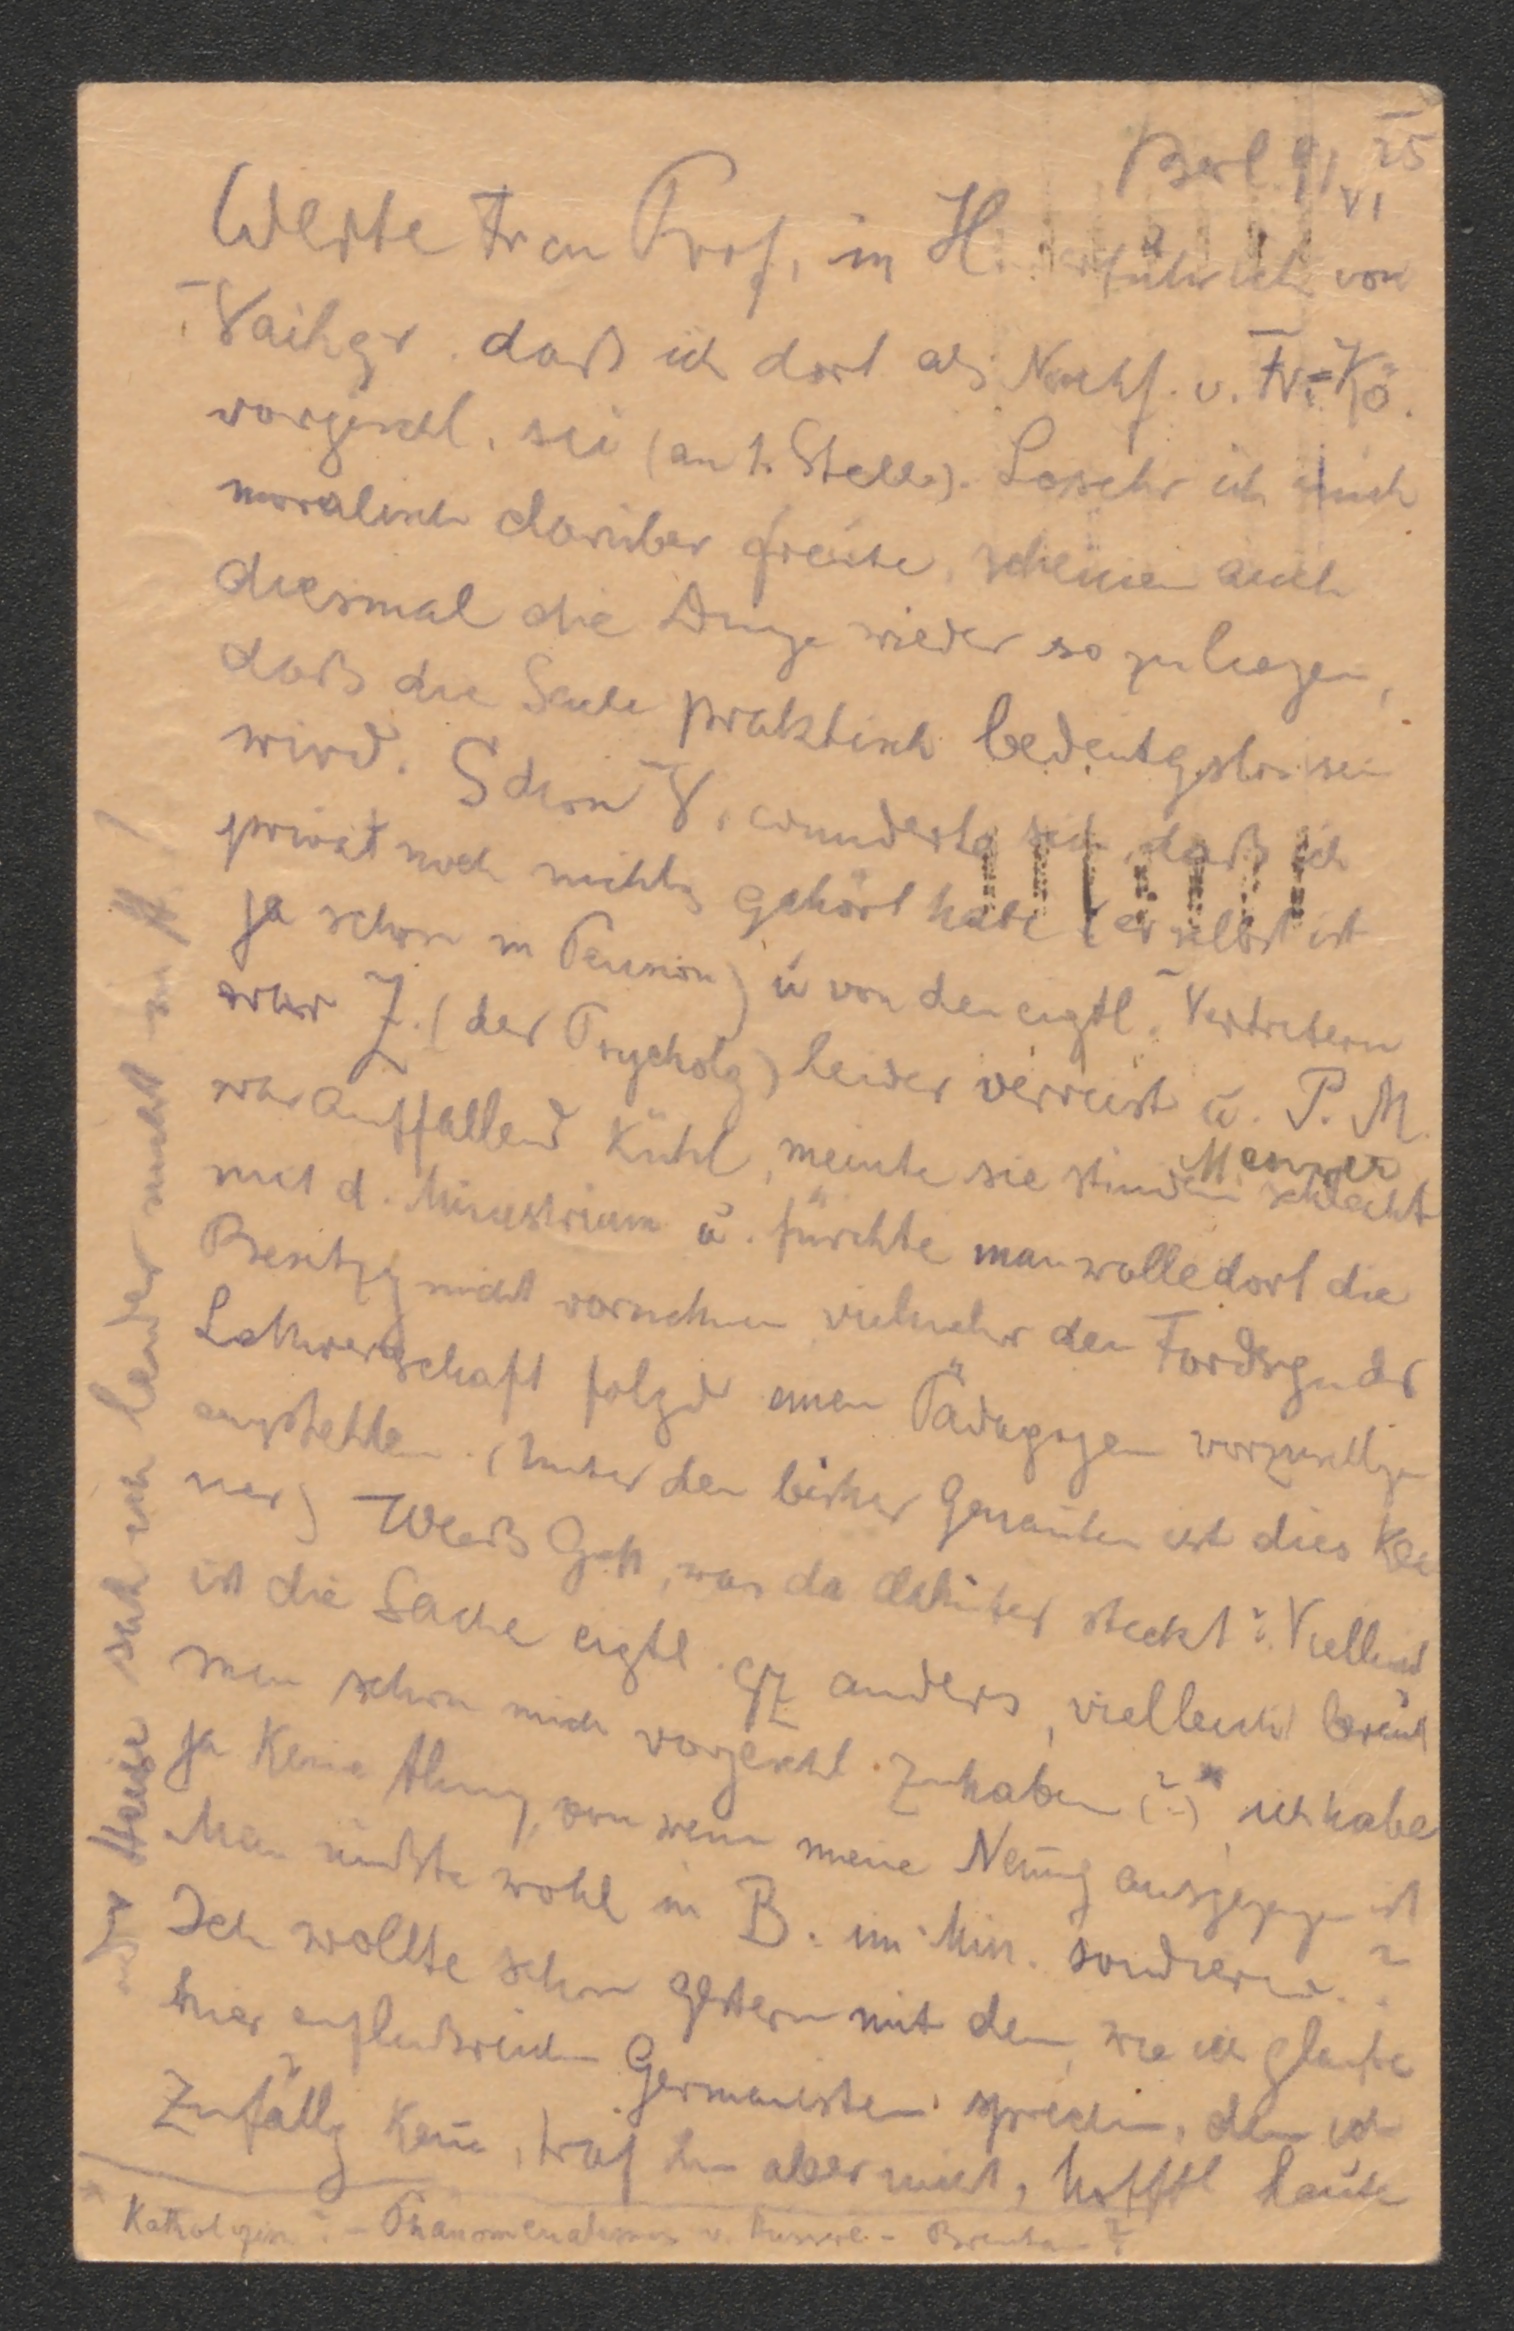 Berl. 9/VI 25
Werte Frau Prof, in H. erfuhr ich von
Vaihgr. daß ich dort als Nachf. v. Fr.=Kö.
vorgeschl. sei (an 1. Stelle). Sosehr ich mich
moralisch darüber freute, scheinen auch
diesmal die Dinge wieder so zu liegen,
daß die Sache praktisch bedeutgslos sein
wird. Schon V. wunderte sich, daß ich
privat noch nichts gehört habe (er selbst ist
ja schon in Pension) u von den eigtl. Vertretern
war Z. (der Psycholg) leider verreist u. P. M.
Menzer
war auffallend kühl, meinte sie stünden schlecht
mit d. Ministerium u. fürchte man wolle dort die
Besetzg nicht vornehmen vielmehr den Fordrgn der
Lehrerschaft folgd einen Pädagogen
empfehlen. (Unter den bisher Genannten ist dies kei
ner) Weiß Gott, was da dahinter steckt? Vielleicht
ist die Sache eigtl. gz anders, vielleicht bereut
man schon mich vorgeschl. zu haben (?)* ich habe
ja keine Ahnung, von wem meine Nennung ausgegangen ist
Man müßte wohl in B. im Min. sondieren.?
Ich wollte schon gestern mit dem, wie ich glaube
hier einflußreichen Germanisten sprechen, den ich
zufällg kenne, traf ihn aber nicht, hofftl heute
* Katholizism? – Phänomenalismus v. Husserl – Brentano?
oder Heise sah ich leider nicht in H.!